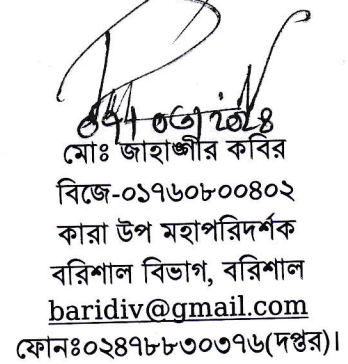 ০৭/০৩/২০২৪
মোঃ জাহাঙ্গীর কবির
বিজে-০১৭৬০৮০০৪০২
কারা উপ মহাপরিদর্শক
বরিশাল বিভাগ, বরিশাল
baridiv@gmail.com
ফোনঃ০২৪৭৮৮৩০৩৭৬(দপ্তর)।